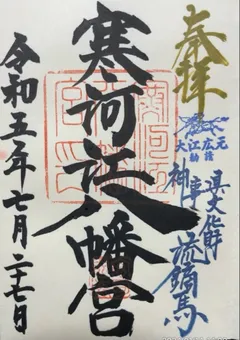 奉拝
大江広元
勧請
県文化財
神事 流鏑馬
寒河江八幡宮
令和五年七月二十七日